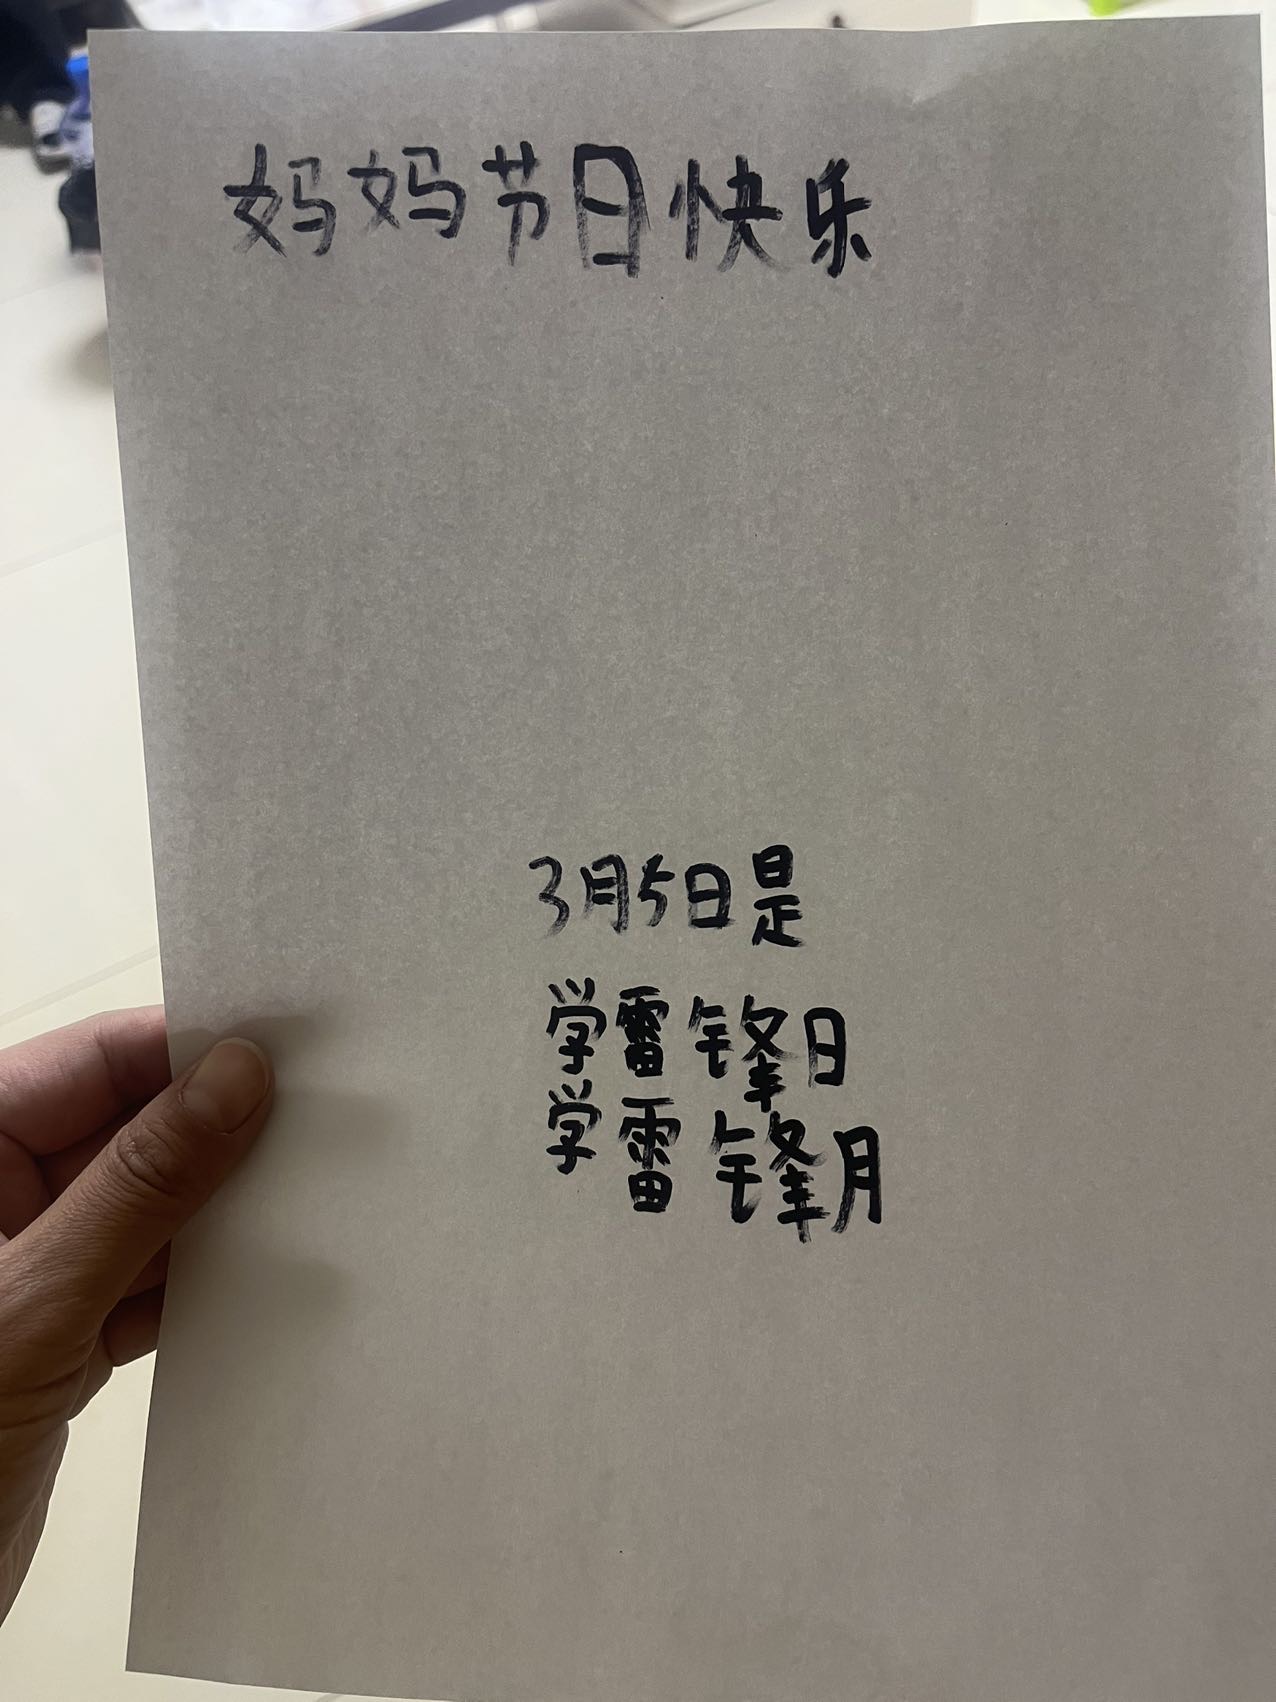 妈妈节日快乐
3月5日是
学雷锋日
学雷锋月